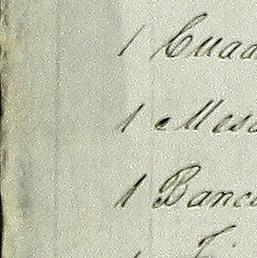 1 Cuad
1 Mesa
1 Banc
1